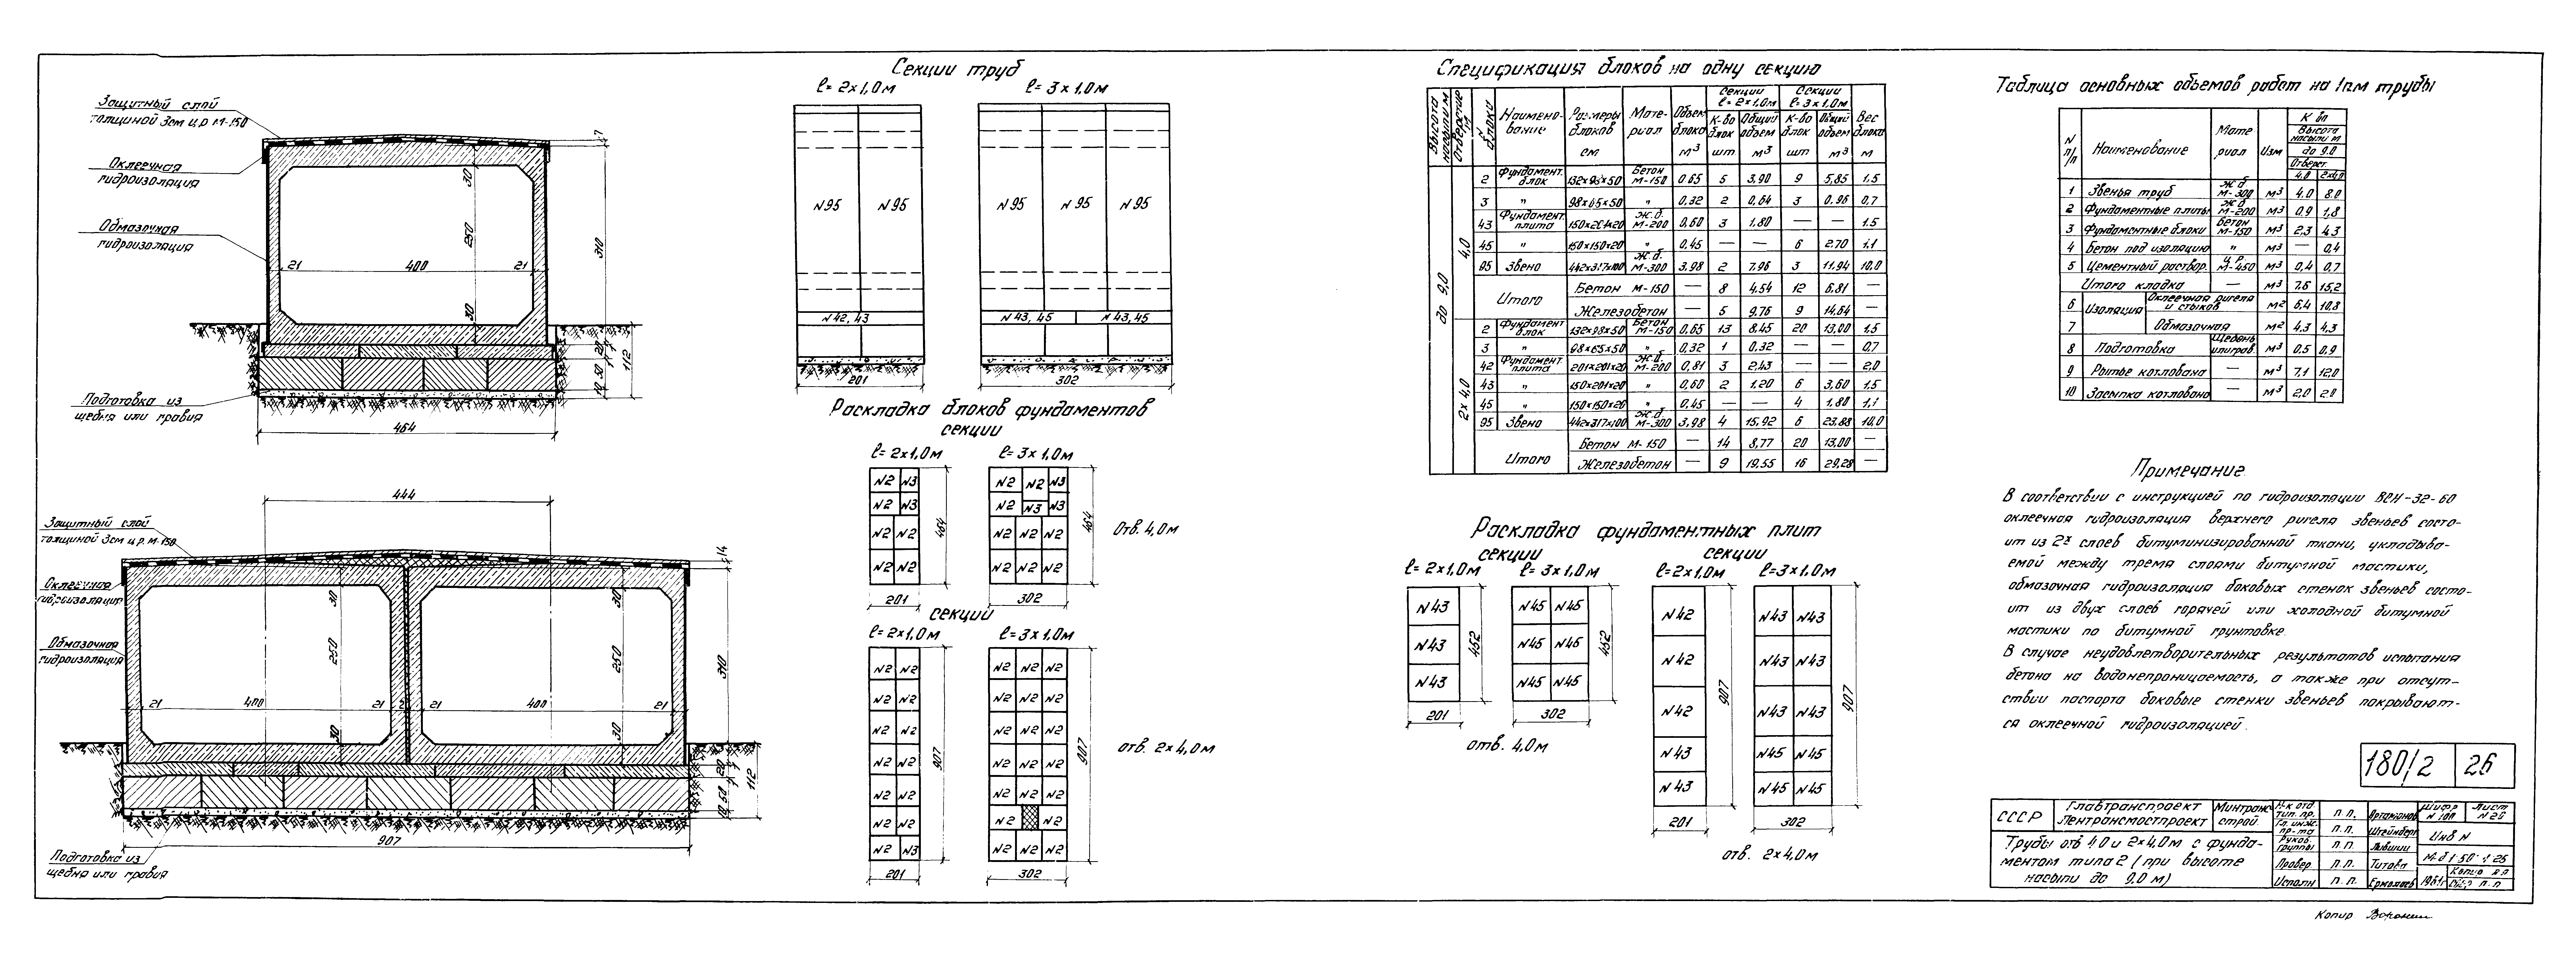 Защитный слой
толщиной 3см ц.р. М-150
Оклеечная
гидроизоляция
Обмазочная
гидроизоляция
Подготовка из
щебня или гравия
7
30
250
310
21 400 21
30
20 1
50
10
112
464
444
Защитный слой
толщиной 3см ц.р. М-150
Оклеечная
гидроизоляция
Обмазочная
гидроизоляция
14
30 30
250 250
310
21 400 21 2 400 21
30 30
20 1
10 50
112
907
Подготовка из
щебня или гравия
Секции труб
ℓ= 2×1,0м ℓ= 3×1,0м
N95 N95 N95 N95 N95
N42,43 N43,45 N43,45
201 302
Раскладка блоков фундаментов
секции
ℓ= 2×1,0м ℓ= 3×1,0м
N2 N3 N2 N2 N3
N2 N3 N2 N3 N3
N2 N2 N2 N2 N2
N2 N2 N2 N2 N2
464 464
Отв. 4,0м
201 302
секции
ℓ= 2×1,0м ℓ= 3×1,0м
N2 N2 N2 N2 N2
N2 N2 N2 N2 N2
N2 N2 N2 N2 N2
N2 N2 N2 N2 N2
N2 N2 N2 N2 N2
N2 N2 N2 N2
N2 N3 N2 N2 N2
907 907
отв. 2×4,0м
201 302
Спецификация блоков на одну секцию
Высота насыпи м
Отверстие м
N блока
Наимено-вание
Размеры блоков см
Мате-риал
Объем блока м³
Секции ℓ= 2×1,0м К-во блок шт Общий объем м³
Секции ℓ= 3×1,0м К-во блок шт Общий объем м³
Вес блока м
до 9,0
4,0
2 Фундамент. блок 132×98×50 Бетон М-150 0,65 5 3,90 9 5,85 1,5
3 " 98×65×50 " 0,32 2 0,64 3 0,96 0,7
43 Фундамент. плита 150×201×20 ж.б. М-200 0,60 3 1,80 — — 1.5
45 " 150×150×20 " 0,45 — — 6 2.70 1,1
95 Звено 442×317×100 ж.б. М-300 3,98 2 7,96 3 11,94 10,0
Итого Бетон М-150 — 8 4,54 12 6,81 —
Железобетон — 5 9,76 9 14,64 —
2×4,0
2 Фундамент блок 132×98×50 Бетон М-150 0,65 13 8,45 20 13,00 1,5
3 " 98×65×50 " 0,32 1 0,32 — — 0,7
42 Фундамент. плита 201×201×20 ж.б. М-200 0,81 3 2,43 — — 2,0
43 " 150×201×20 " 0,60 2 1,20 6 3,60 1,5
45 " 150×150×20 " 0,45 — — 4 1,80 1,1
95 Звено 442×317×100 ж.б. М-300 3,98 4 15,92 6 23,88 10,0
Итого Бетон М-150 — 14 8,77 20 13,00 —
Железобетон — 9 19,55 16 29,28 —
Раскладка фундаментных плит
секции секции
ℓ= 2×1,0м ℓ= 3×1,0м ℓ=2×1,0м ℓ=3×1,0м
N43 N45 N45 N42 N43 N43
N43 N45 N45 N42 N43 N43
N43 N45 N45 N42 N43 N43
N43 N45 N45
N43 N45 N45
452 452 907 907
201 302 201 302
отв. 4,0м
отв. 2×4,0м
Таблица основных объемов работ на 1пм трубы
N п/п Наименование Мате риал Изм К вп
Высота насыпи м
до 9.0
Отверст.
4,0 2×4,0
1 Звенья труб ж.б М-300 м³ 4,0 8.0
2 Фундаментные плиты ж.б М-200 м³ 0,9 1,8
3 Фундаментные блоки Бетон М-150 м³ 2,3 4,3
4 Бетон под изоляцию " м³ — 0,4
5 Цементный раствор. ц.р. М-450 м³ 0,4 0,7
Итого кладка — м³ 7,6 15,2
6 Изоляция Оклеечная ригеля и стыков м² 6,4 10,8
7 Обмазочная м² 4,3 4,3
8 Подготовка Щебень или грав. м³ 0,5 0,9
9 Рытье котлована — м³ 7,1 12.0
10 Засыпка котлована — м³ 2,0 2.0
Примечание
В соответствии с инструкцией по гидроизоляции ВСН-32-60
оклеечная гидроизоляция верхнего ригеля звеньев состо-
ит из 2х слоев битуминизированной ткани, укладыва-
емой между тремя слоями битумной мастики,
обмазочная гидроизоляция боковых стенок звеньев состо-
ит из двух слоев горячей или холодной битумной
мастики по битумной грунтовке.
В случае неудовлетворительных результатов испытания
бетона на водонепроницаемость, а также при отсут-
ствии паспорта боковые стенки звеньев покрывают-
ся оклеечной гидроизоляцией.
180/2 26
СССР Главтранспроект Минтранс
Лентрансмостпроект строй
Трубы отв 4,0 и 2×4,0м с фунда-
ментом типа 2 (при высоте
насыпи до 9,0 м)
Н-к отд. тип. пр. п.п. Артамонов
Гл. инж. пр-та п.п. Штейнберг
Руков. группы п.п. Лившиц
Провер. п.п. Титова
Исполн п.п. Ермолаев
Шифр Лист
N 180 N 26
Инв N
М-б 1:50; 1:25
1961г
Копир Воронин